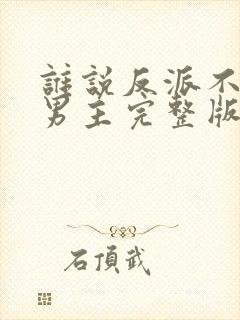 誰說反派不
男主完整版
石頂武